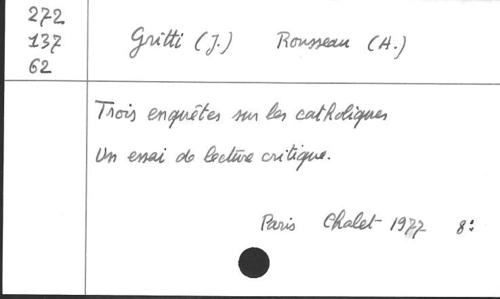 272
137 Gritti (J.) Rousseau (A.)
62
Trois enquêtes sur les catholiques
Un essai de lecture critique.
Paris Chalet 1977 8: